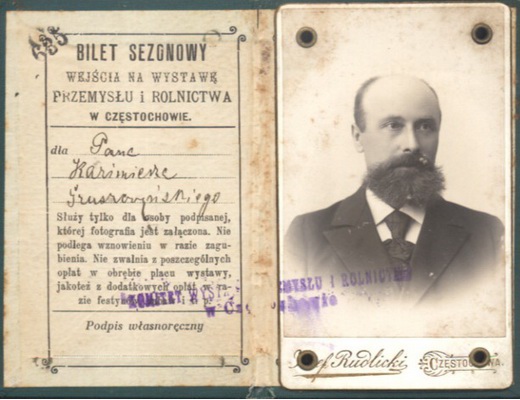 BILET SEZONOWY
WEJŚCIA NA WYSTAWĘ
PRZEMYSŁU i ROLNICTWA
W CZĘSTOCHOWIE.
dla Pana
Kazimierza
Gruszczyńskiego
Służy tylko dla osoby podpisanej,
której fotografia jest załączona. Nie
podlega wznowieniu w razie zagu-
bienia. Nie zwalnia z poszczególnych
opłat w obrębie placu wystawy,
jakoteż z dodatkowych opłat w ra-
zie
Podpis własnoręczny
KOMITET PRZEMYSŁU I ROLNICTWA
w Częstochowie
Rudlicki CZĘSTOCHOWA.